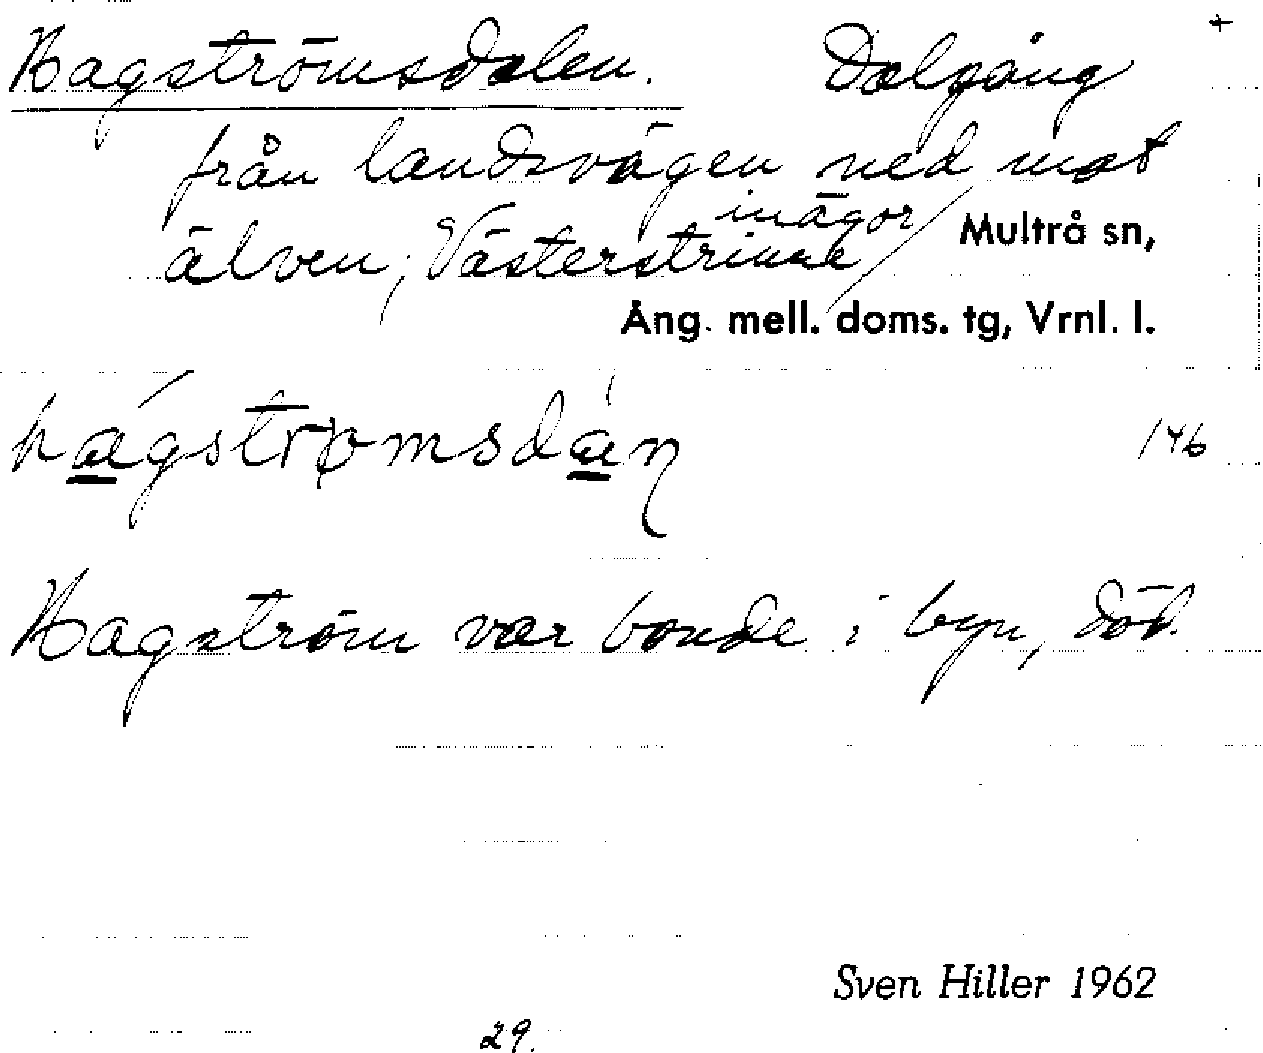 Hagströmsdalen. Dalgång +
från landsvägen ned mot
älven, Västerstrinne inägor Multrå sn,
Ång. mell. doms. tg, Vrnl. l.
hágstrømsdán 146
Hagström var bonde i byn, död.
Sven Hiller 1962
29.